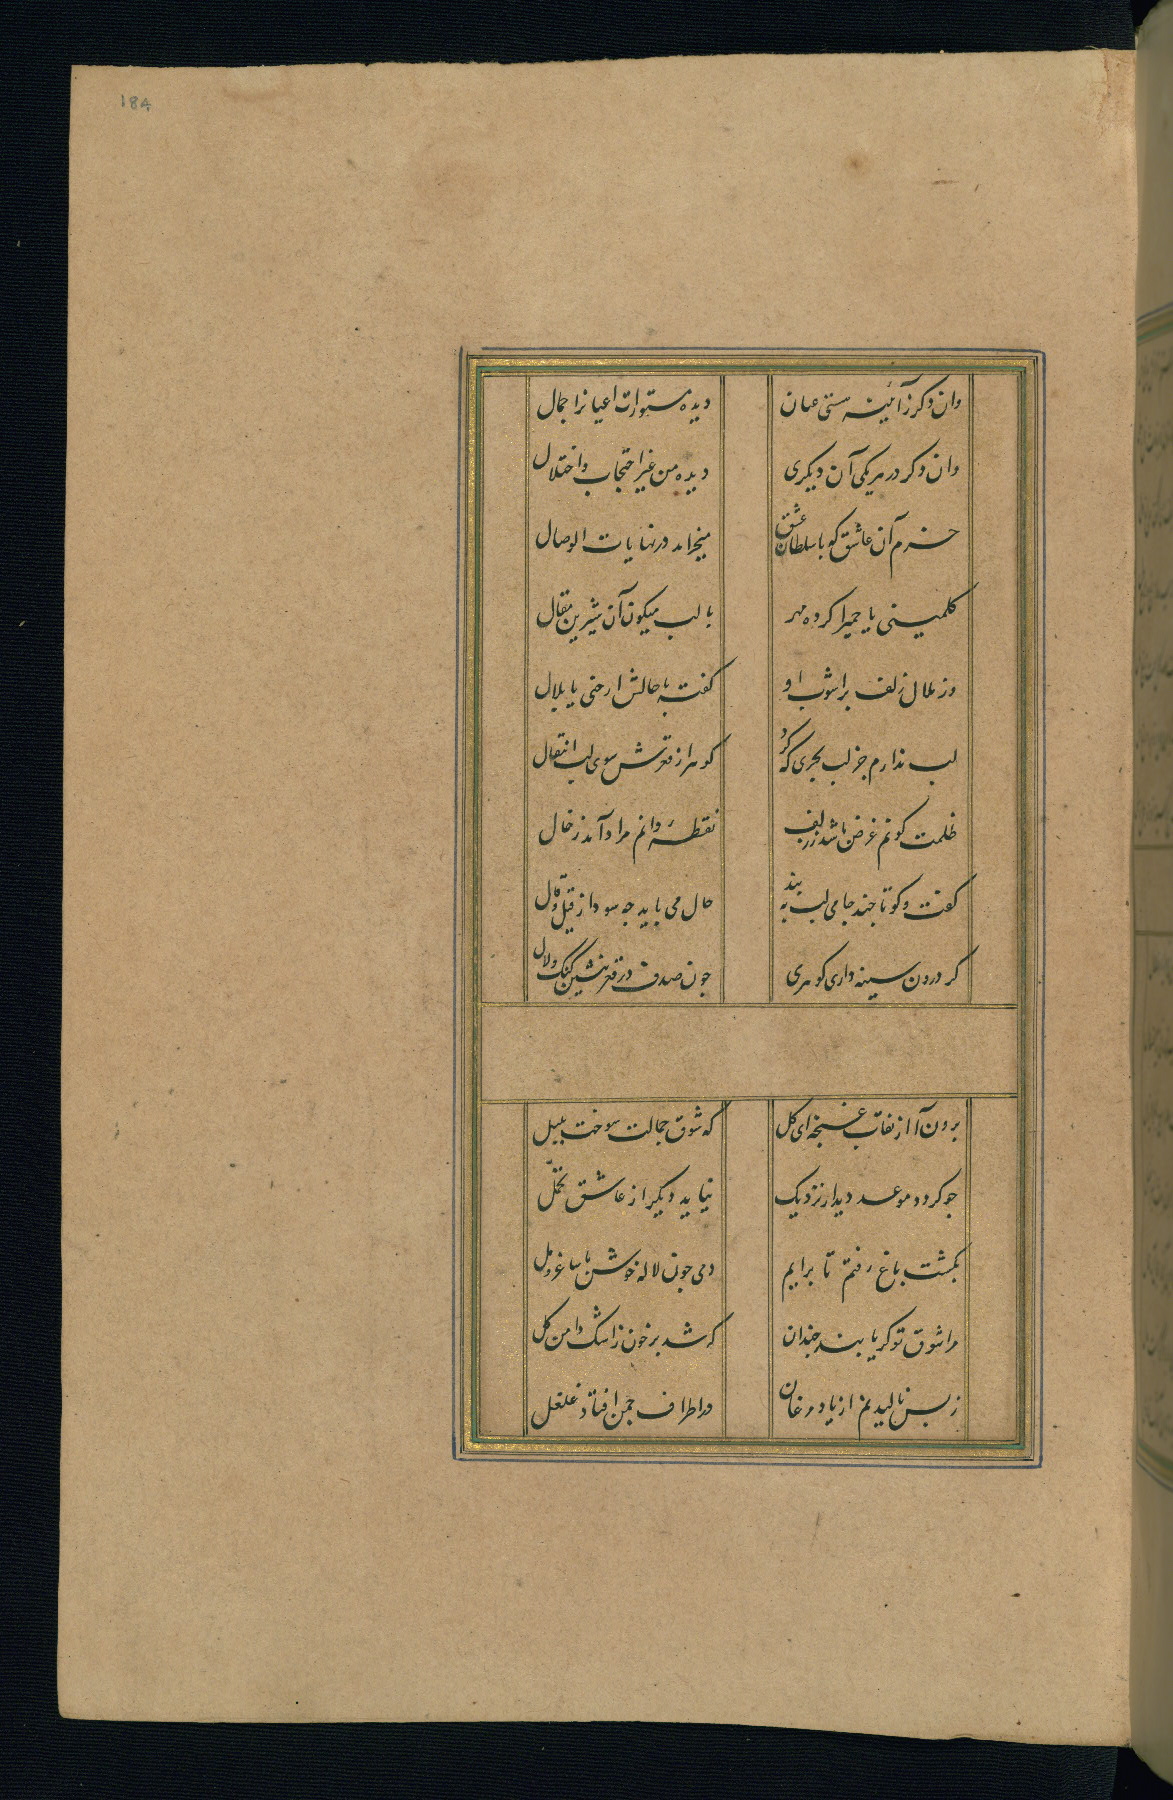 184
وان دکر ز آئینه هستی عیان دیده مستورات اعیانرا جمال
وان دکر در هریکی آن دیکری دیده من غیر احتجاب و اختلال
خرم آن عاشق کو با سلطان عشق میخرامد در نهایات الوصال
کلمینی یا حمیرا کرده مهر با لب میکون آن شیرین مقال
وز ملال زلف براشوب او کفته با خالش ارحنی یا بلال
لب ندارم جز لب بحری که کرد کوهر از قعرش سوی لب انتقال
ظلمت کونم غرض باشد ز زلف نقطهٔ وانم مراد آمد ز خال
کفت وکو تا چند جامی لب به بند حال می باید چه سود از قیل و قال
کر درون سینه داری کوهری چون صدف در قعر بنشین کنک و لال
برون آ از نقاب غنچه ای کل که شوق جمالت سوخت بلبل
چو کردد موعد دیدار نزدیک نیاید دیکر از عاشق تحمّل
بکشت باغ رفتم تا برایم دمی چون لاله خوش با ساغر و مل
مرا شوق تو کریانید چندان که شد پر خون ز اشک دامن کل
ز بس نالیدنم از یاد مرغان در اطراف چمن افتاد غلغل